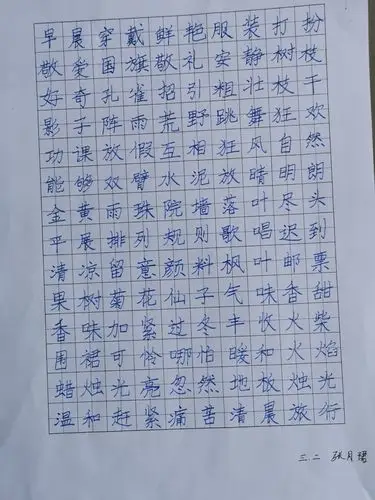 早晨穿戴鲜艳服装打扮
敬爱国旗敬礼安静树枝
好奇孔雀招引粗壮枝干
影子阵雨荒野跳舞狂欢
功课放假互相狂风自然
能够双臂水泥放晴明朗
金黄雨珠院墙落叶尽头
平展排列规则歌唱迟到
清凉留意颜料枫叶邮票
果树菊花仙子气味香甜
香味加紧过冬丰收火柴
围裙可怜哪怕暖和火焰
蜡烛光亮忽然地板烛光
温和赶紧痛苦清晨旅行
三.二 张月